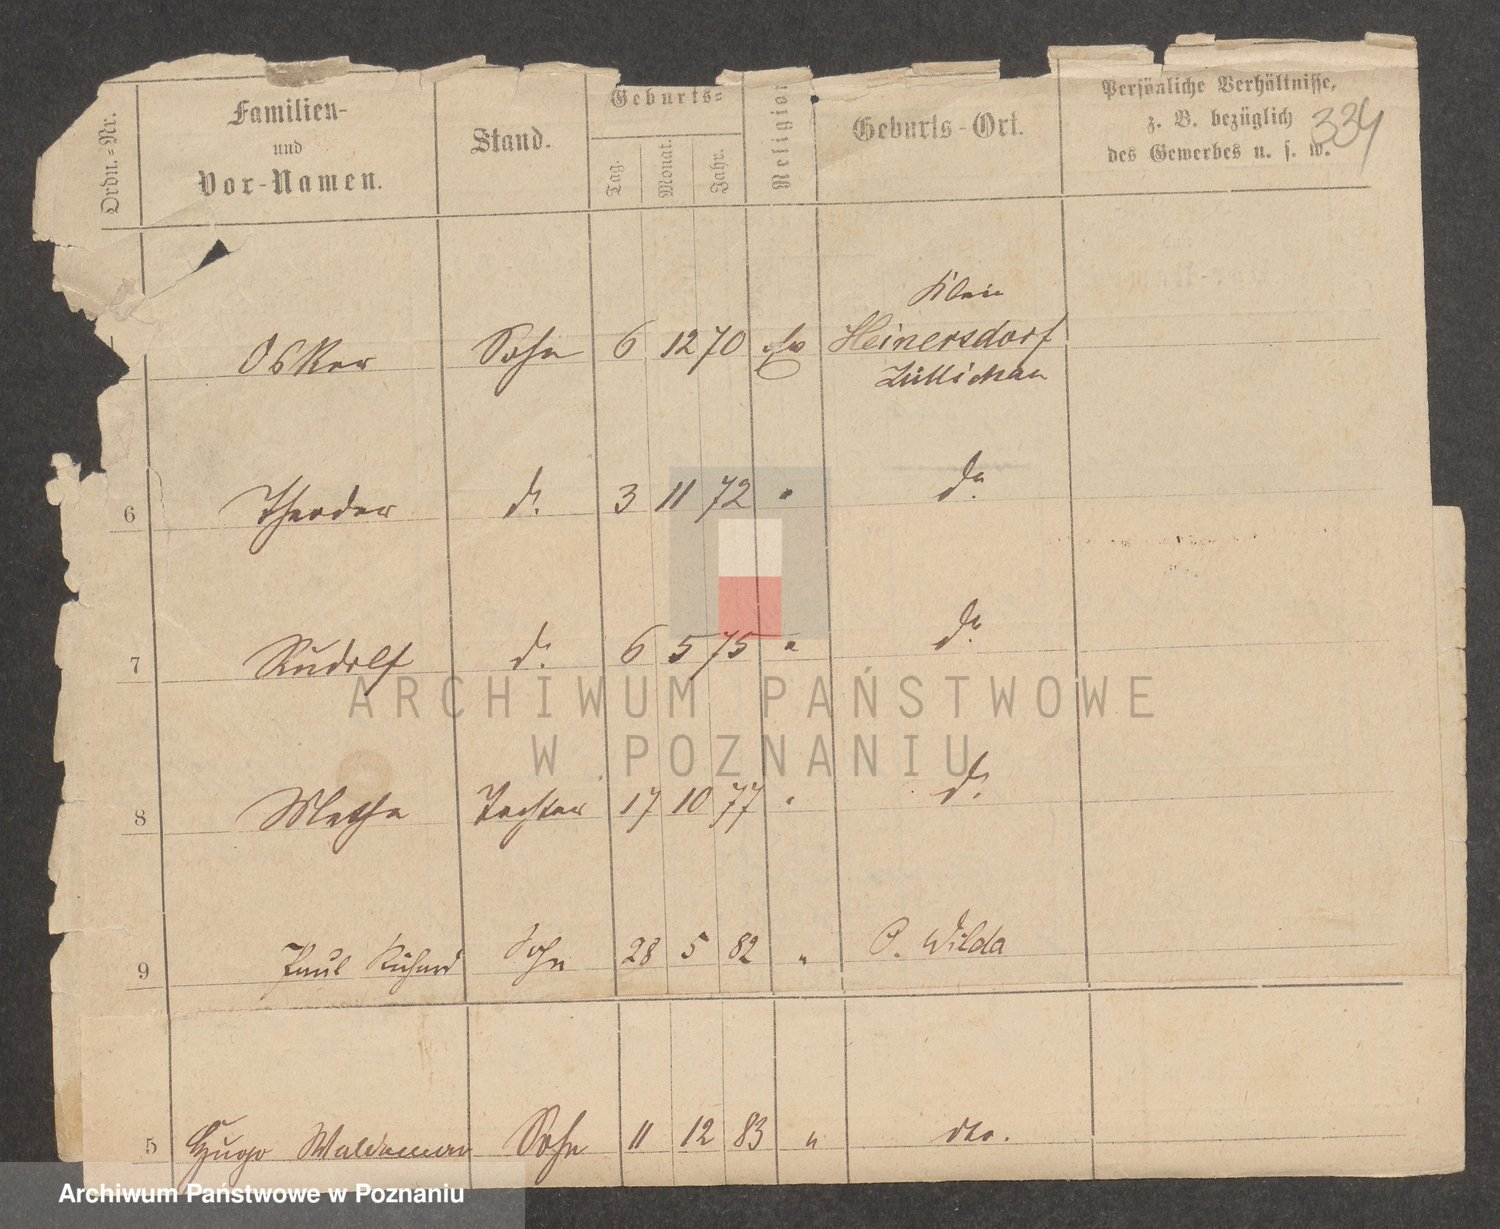 334
Ordn.-Nr.
Familien-
und
Vor-Namen.
Stand.
Geburts-
Tag.
Monat.
Jahr.
Religion
Geburts-Ort.
Persönliche Verhältnisse,
z. B. bezüglich
des Gewerbes u. s. w.
Klein
Oskar Sohn 6 12 70 ev Heinersdorf
Züllichau
6 Theodor do. 3 11 72 " do.
7 Rudolf do. 6 5 75 " do.
8 Tochter 17 10 77 " do.
9 Paul Richard Sohn 28 5 82 " O. Wilda
5 Hugo Waldemar Sohn 11 12 83 " dto.
ARCHIWUM PAŃSTWOWE
W POZNANIU
Archiwum Państwowe w Poznaniu